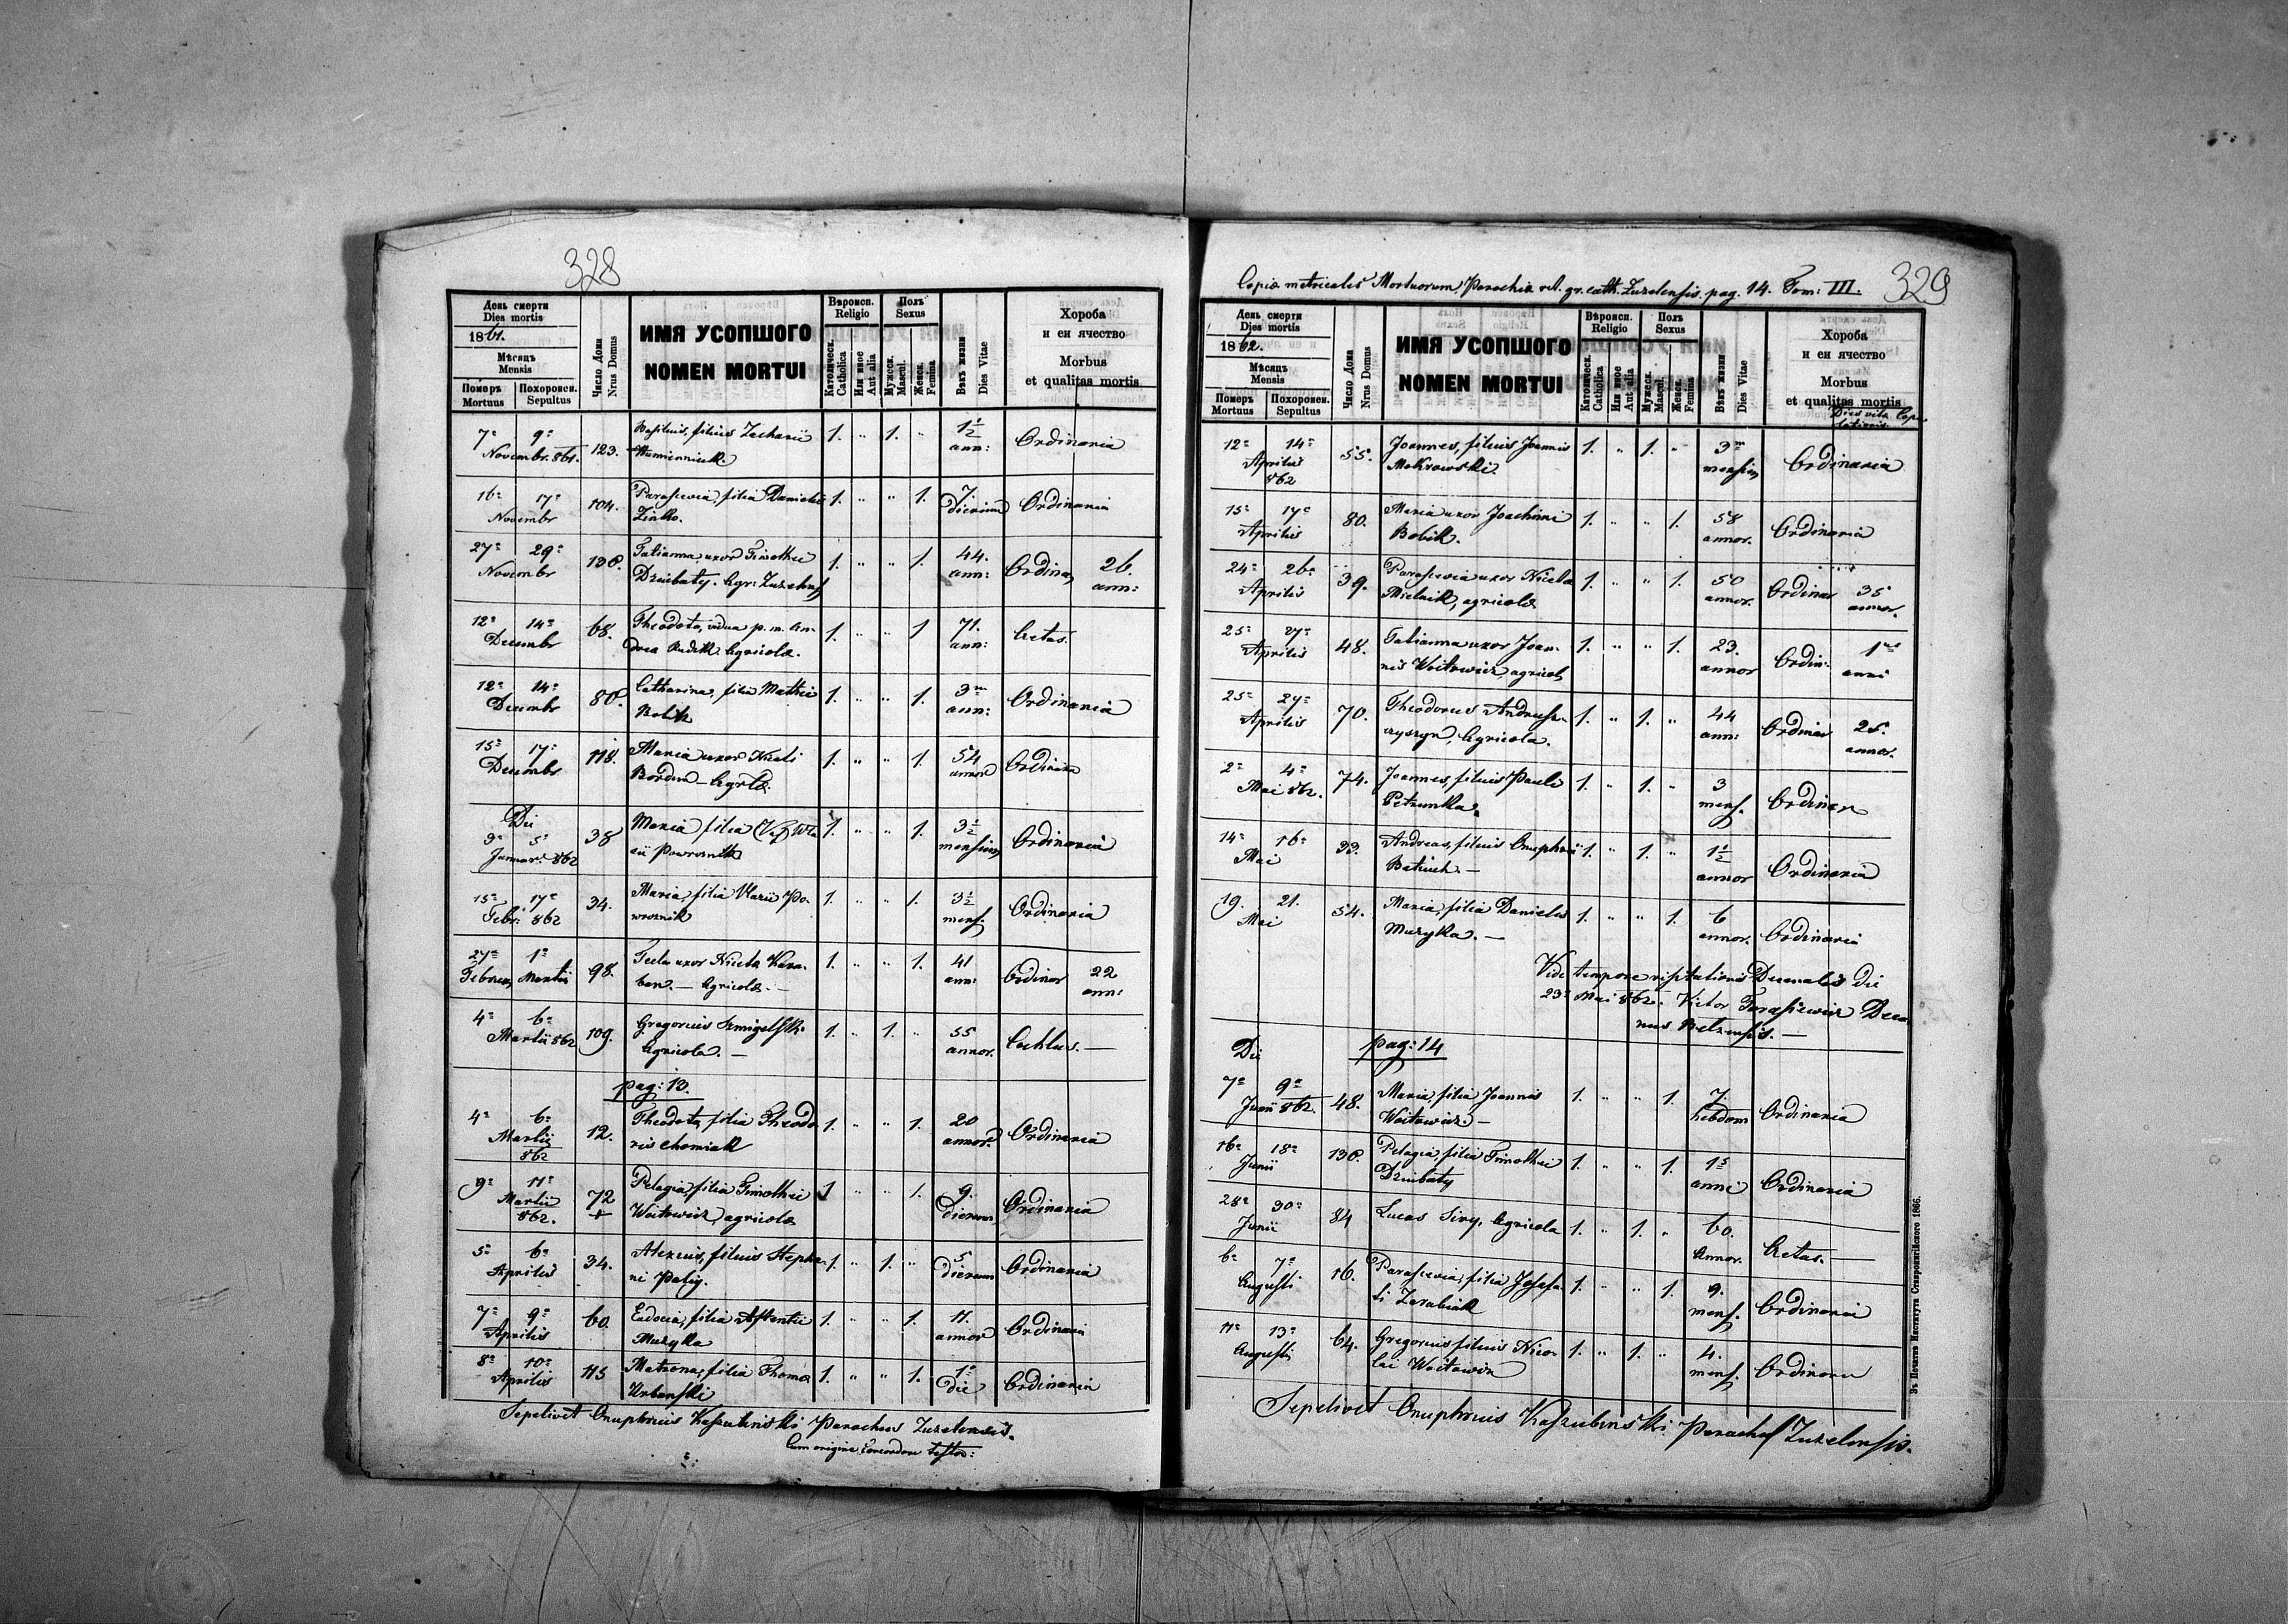 328
День смерти
Dies mortis
1861.
Мѣсяцъ
Mensis
Померъ Похоронен.
Mortuus Sepultus
Число Дома
Nrus Domus
ИМЯ УСОПШОГО
NOMEN MORTUI
Вѣроисп.
Religio
Католическ.
Catholica
Или иное
Aut alia
Полъ
Sexus
Мужеск.
Mascul.
Женск.
Femina
Вѣкъ жизни
Dies Vitae
Хороба
и еи ячество
Morbus
et qualitas mortis
7a 9a 123. Basilius, filius Zachariæ 1. " 1. " 1½ Ordinaria
Novembr. 861. ann:
16a 17a 104. Parascevia, filia Danielis 1. " " 1. 7. Ordinaria
Novembr Zinko. dierum
27a 29a 136. Tatianna, uxor Timothei 1. " " 1. 44. Ordinar 26.
Novembr Dziubaty. Agr: Zuzelens ann: ann:
12a 14a 68. Theodota, vidua p. m. An- 1. " " 1 71. Aetas.
Decembr drea Agricolæ. ann:
12a 14a 80. Catharina, filia Mathei 1. " " 1. 3m Ordinaria
Decembr Bobik ann:
15a 17a 118. Maria uxor 1. " " 1. 54 Ordinaria
Decembr annor
Die
3a 5a 38 Maria, filia 1. " " 1. 3½ Ordinaria
Januar: 862 Powroznik mensium
15a 17a 34. Maria, filia Po- 1. " " 1. 3½ Ordinaria
Febr: 862 wroznik mens.
27a 1a 98. Tecla uxor Nicetæ Kara- 1. " " 1. 41 Ordinar 22
Februar Martii ban. — Agricolæ. — ann: ann:
4a 6a 109. Gregorius Szmigelski 1. " 1. " 55
Martii 862 Agricola. — annor.
pag: 13.
4a 6a 12. Theodota, filia Theodo- 1. " " 1. 20 Ordinaria
Martii ris Chomiak annor.
862
9a 11a 72 Pelagia, filia Timothei 1 " " 1. 9. Ordinaria
Martii + Woitowicz, agricolæ dierum
862.
5a 6a 34. Alexius, filius Stepha- 1. " 1. " 5 Ordinaria
Aprilis ni Paliy. dierum
7a 9a 60. Eudocia, filia 1. " " 1. 11. Ordinaria
Aprilis Muzyka annor
8a 10a 115 Matrona, filia Thoma 1. " " 1. 1a Ordinaria
Aprilis Urbanski die
Sepelivit Onuphrius Kaszubinski Parochus Zuzelensis.
Cum origine testor:
Copia metricalis Mortuorum, Parochiæ rit. gr. cath. Zuzelensis. pag. 14. Tom: III. 329
День смерти
Dies mortis
1862.
Мѣсяцъ
Mensis
Померъ Похоронен.
Mortuus Sepultus
Число Дома
Nrus Domus
ИМЯ УСОПШОГО
NOMEN MORTUI
Вѣроисп.
Religio
Католическ.
Catholica
Или иное
Aut alia
Полъ
Sexus
Мужеск.
Mascul.
Женск.
Femina
Вѣкъ жизни
Dies Vitae
Хороба
и еи ячество
Morbus
et qualitas mortis
Dies vitæ Copu-
lationis.
12a 14a 55. Joannes, filius Joannis 1. " 1. " 3m Ordinaria
Aprilis Mokrowski mensium
862
15a 17a 80. Maria uxor Joachimi 1. " " 1. 58 Ordinaria
Aprilis Bobik. annor.
24a 26a 39. Parascevia uxor Nicetæ 1. " " 1. 50 Ordinar 35
Aprilis Mielnik, agricolæ annor. annor.
25a 27a 48. Tatianna uxor Joan- 1. " " 1. 23. Ordin: 1
Aprilis nis Woitowicz, agricol annor anni
25a 27a 70. Theodorus Andrusz- 1. " 1. " 44 Ordinar 25.
Aprilis czyszyn, Agricola. ann: annor.
2a 4a 74. Joannes, filius Pauli 1. " 1. " 3
Mai 862. Petrunka. mens.
14a 16a 33. Andreas, filius Onuphrii 1. " 1. " 1½ Ordinaria
Mai — annor
19. 21. 54. Maria, filia Danielis 1. " " 1. 6 Ordinaria
Mai Muzyka. — annor.
Vidi tempore visitationis Decanalis die
23a Mai 862. Victor Tarasiewicz Deca-
nus Belzensis. —
Die pag: 14
7a 9a 48. Maria, filia Joannis 1. " " 1. 7. Ordinaria
Junii 862. Woitowicz. — hebdom
16a 18a 136. Pelagia, filia Timothei 1. " " 1. 1 Ordinaria
Junii Dziubaty anni
28a 30a 84 Lucas Siry, Agricola 1. " 1. " 60. Aetas. —
Junii Annor.
6a 7a 16. Parascevia, filia Josafa- 1. " " 1. 9. Ordinaria
Augusti ti Zarabiak mens.
11a 13a 64. Gregorius filius Nico- 1. " 1. " 4. Ordinaria
Augusti lai Woitowicz mens.
Sepelivit Onuphrius Kaszubinski Paroch Zuzelensis.
Въ Печатни Инстнтута Ставропигійского 1866.